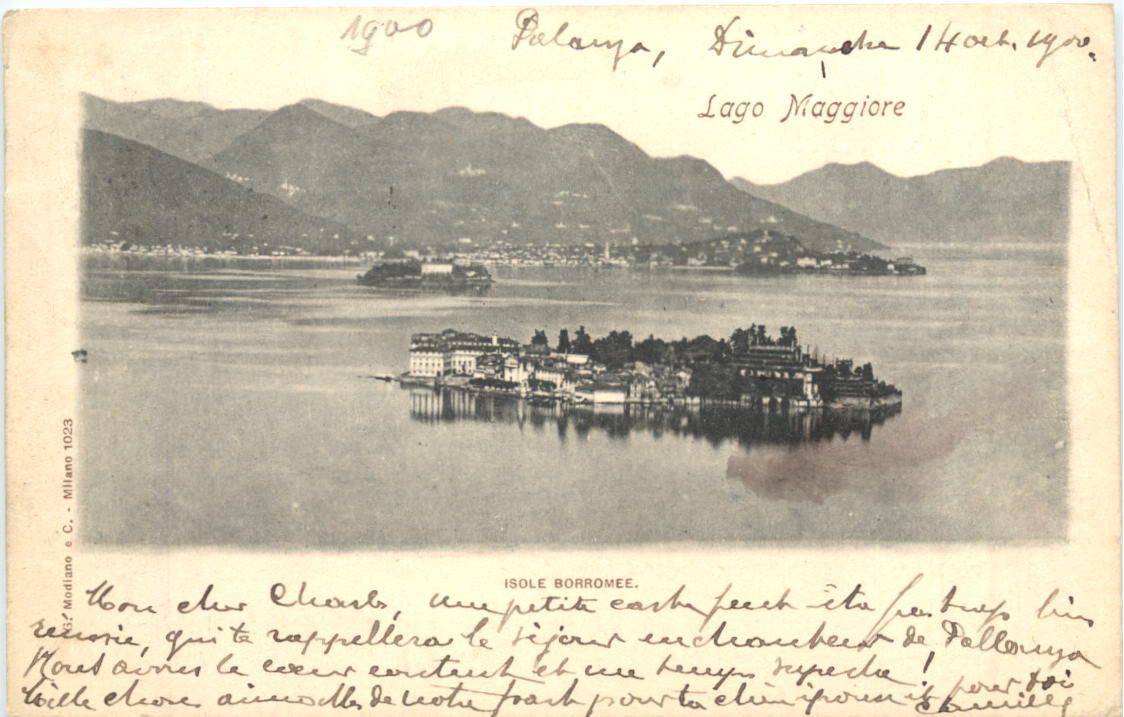 1900
Palanza, Dimanche 14 oct. 1900.
Lago Maggiore
G. Modiano e C. - Milano 1023
ISOLE BORROMEE.
Mon cher Charles, une petite carte peut-être pas trop bien
réussie, qui te rappellera le séjour enchanteur de Pallanza
Nous avons le cœur content et un temps superbe!
Mille choses aimables de notre part pour ta chère et pour toi
Camille